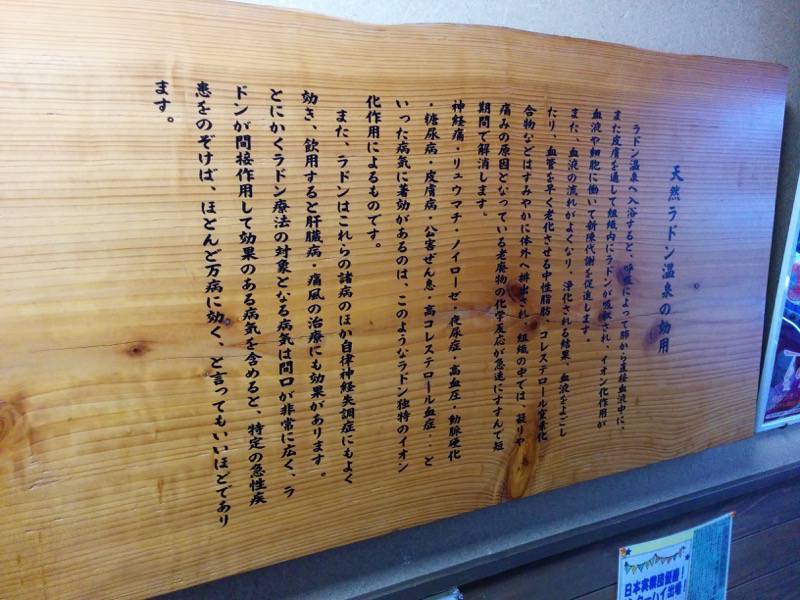 天然ラドン温泉の効用
ラドン温泉へ入浴すると、呼吸によって肺から直接血液中に、
また皮膚を通して組織内にラドンが吸収され、イオン化作用が
血液や細胞に働いて新陳代謝を促進します。
また、血液の流れがよくなり、浄化される結果、血液をよごし
たり、血管を早く老化させる中性脂肪、コレステロール窒素化
合物などはすみやかに体外へ排出され、組織の中では、凝りや
痛みの原因となっている老廃物の化学反応が急速にすすんで短
期間で解消します。
神経痛・リュウマチ・ノイローゼ・夜尿症・高血圧・動脈硬化
・糖尿病・皮膚病・公害ぜん息・高コレステロール血症・・と
いった病気に著効があるのは、このようなラドン独特のイオン
化作用によるものです。
また、ラドンはこれらの諸病のほか自律神経失調症にもよく
効き、飲用すると肝臓病・痛風の治療にも効果があります。
とにかくラドン療法の対象となる病気は間口が非常に広く、ラ
ドンが間接作用して効果のある病気を含めると、特定の急性疾
患をのぞけば、ほとんど万病に効く、と言ってもいいほどであり
ます。
日本実業団